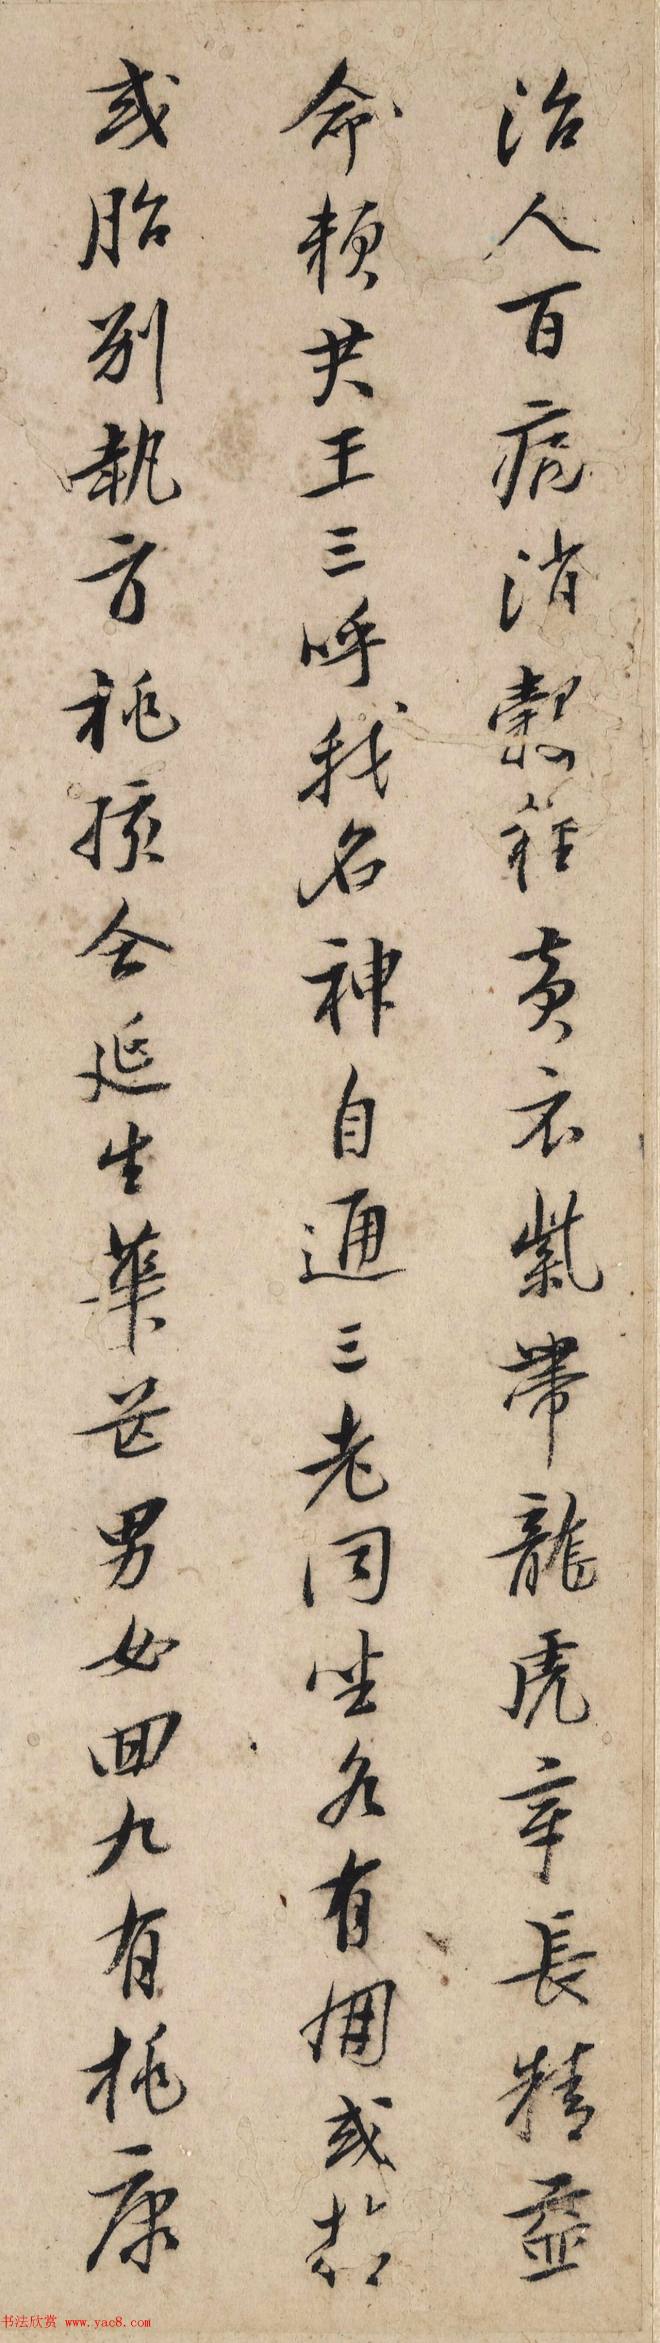 治人百病消穀糧黃衣紫帶龍虎章長精益
命賴共王三呼我名神自通三老同坐各有朋或精
或胎別執方桃孩合延生華芒男女回九有桃康
书法欣赏 www.yac8.com